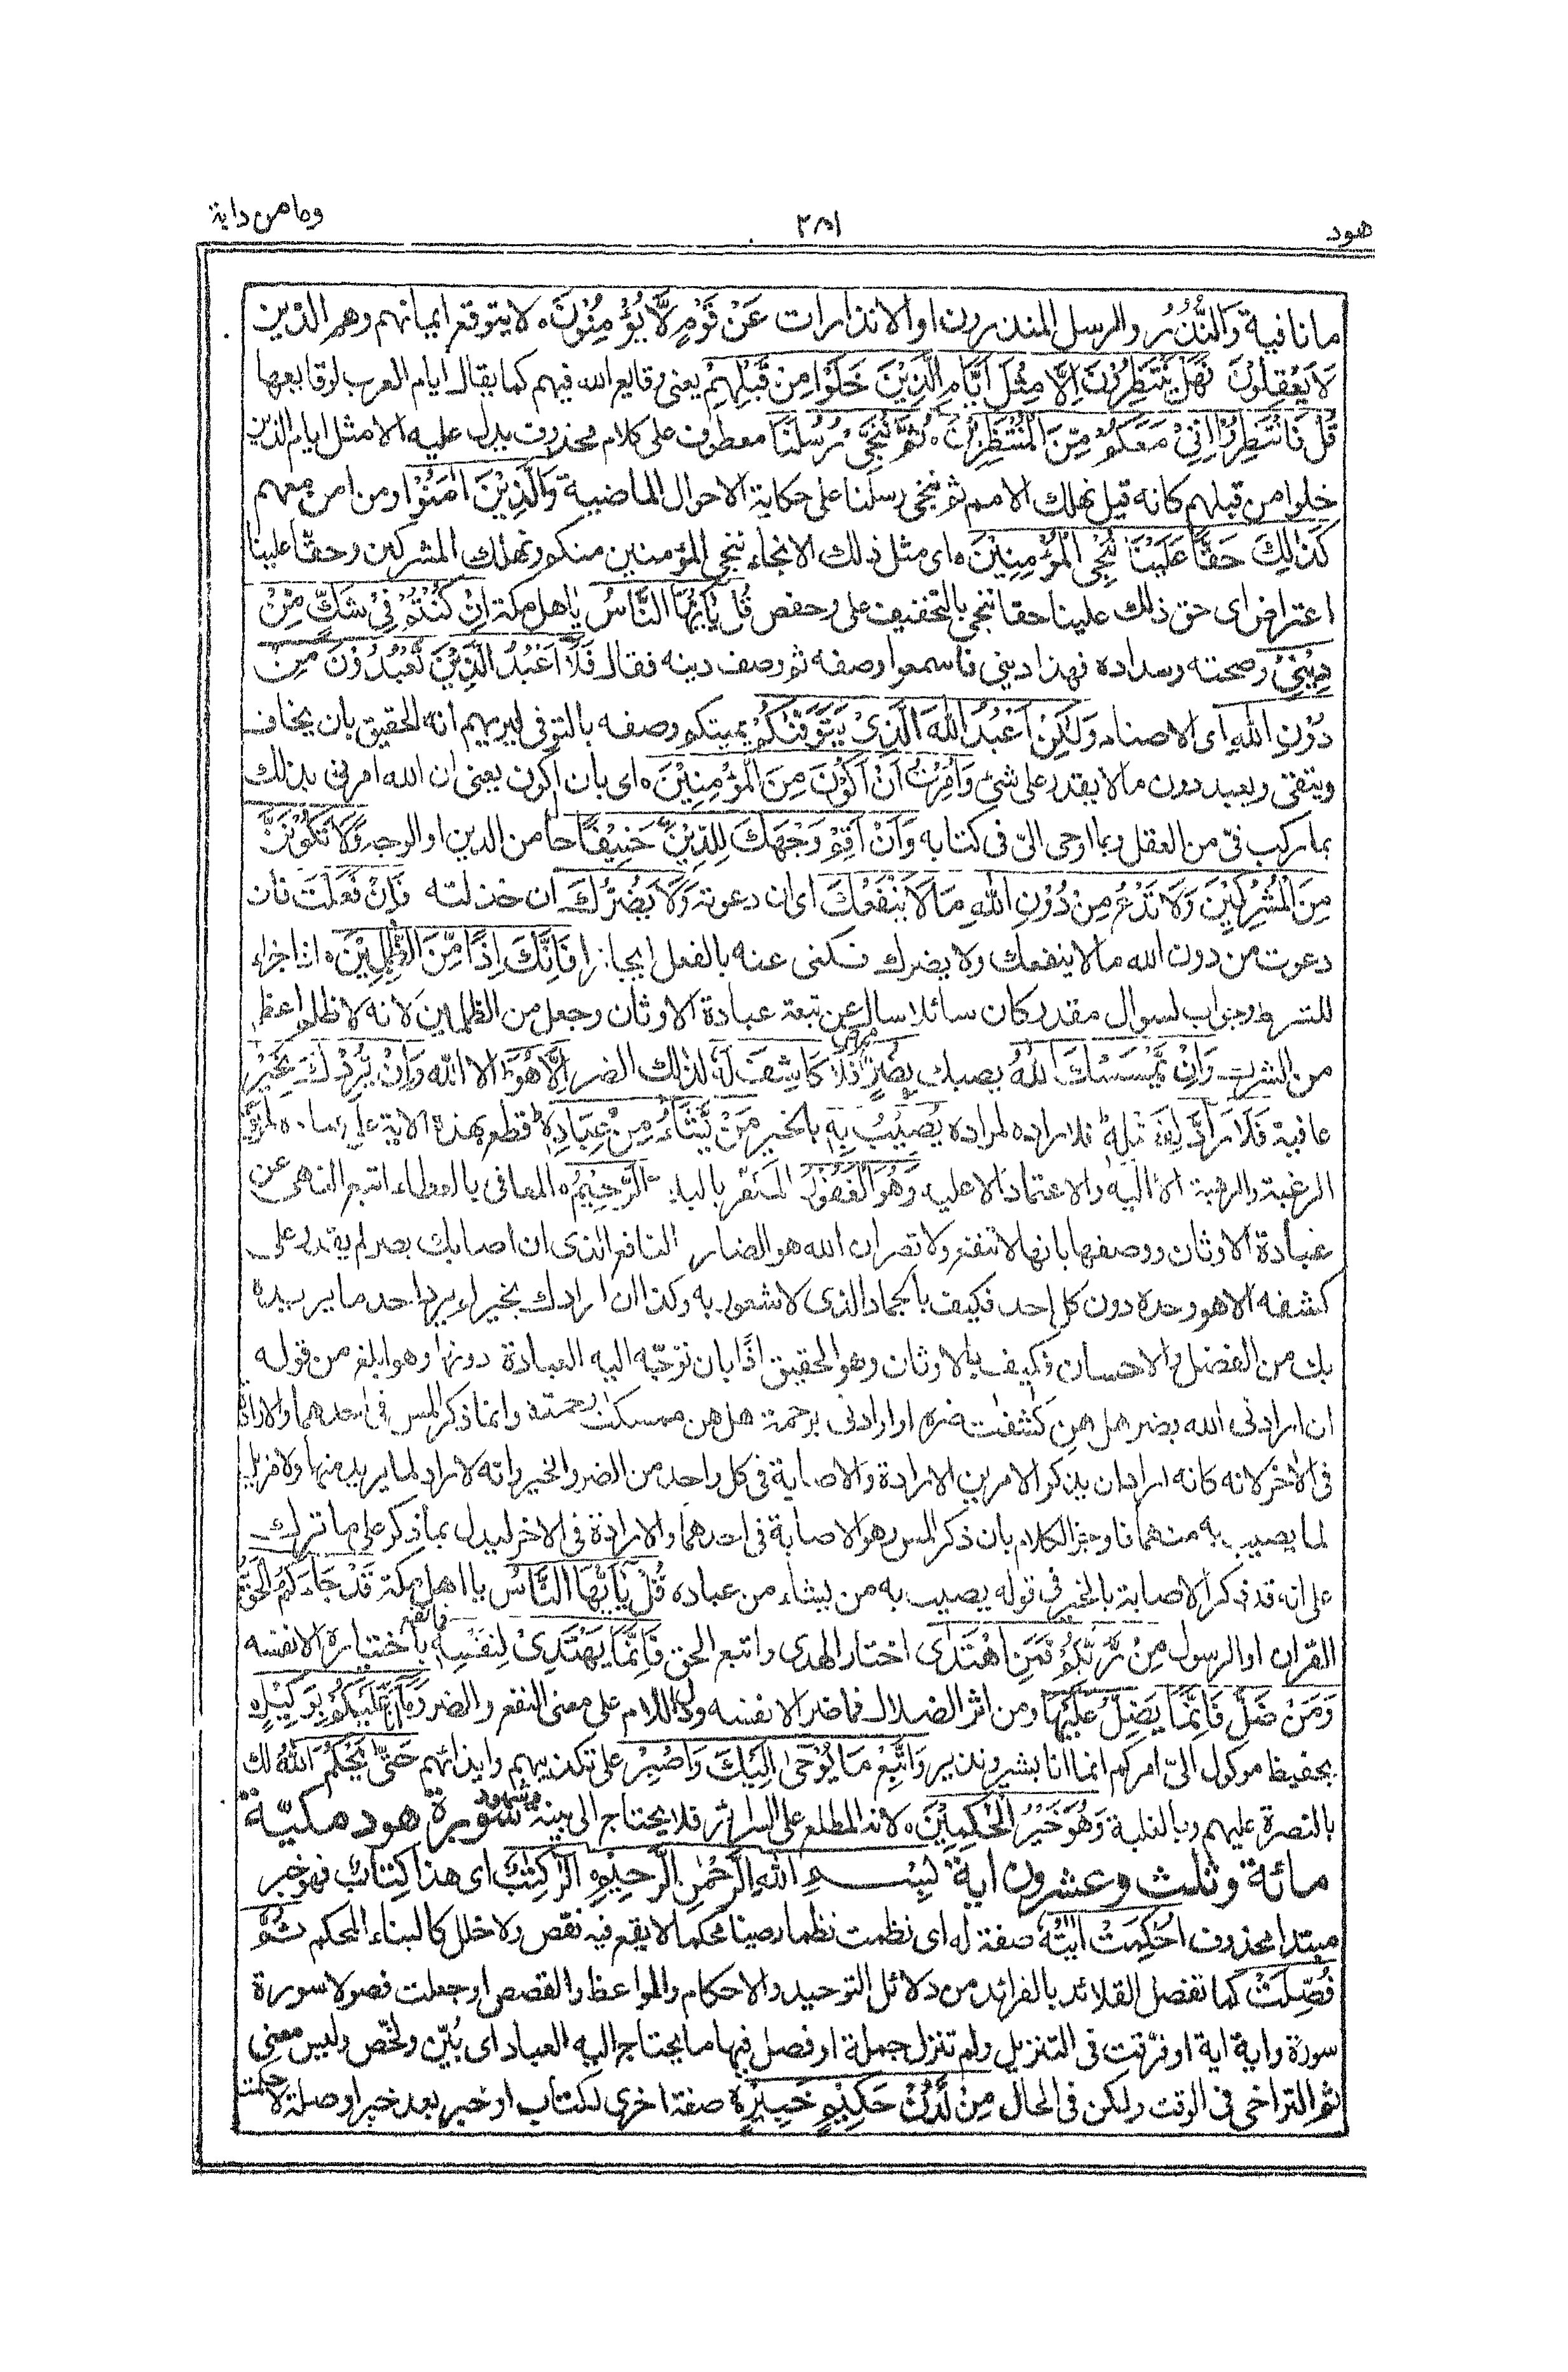 هود
۳۸۱
وما من دابة
ما نافية وَالنُّذُرُ والرسل المنذرون او الانذارات عَنْ قَوْمٍ لَّا يُؤْمِنُوْنَ ٥ لا يتوقع ايمانهم وهم الذين
لَا يَعْقِلُوْنَ فَهَلْ يَنْتَظِرُوْنَ اِلَّا مِثْلَ اَيَّامِ الَّذِيْنَ خَلَوْا مِنْ قَبْلِهِمْ يعنى وقايع الله فيهم كما يقال ايام العرب لوقايعها
قُلْ فَانْتَظِرُوْا اِنِّىْ مَعَكُمْ مِّنَ الْمُنْتَظِرِيْنَ ٥ ثُمَّ نُنَجِّىْ رُسُلَنَا معطوف على كلام محذوف يدل عليه الا مثل ايام الذين
خلوا من قبلهم كانه قيل نهلك الامم ثم ننجى رسلنا على حكاية الاحوال الماضية وَالَّذِيْنَ اٰمَنُوْا ومن امن معهم
كَذٰلِكَ حَقًّا عَلَيْنَا نُنْجِ الْمُؤْمِنِيْنَ ٥ اى مثل ذلك الانجاء ننجى المؤمنين منكم ونهلك المشركين وحقا علينا
اعتراض اى حق ذلك علينا حقا ننجى بالتخفيف على وحفص قُلْ يٰٓاَيُّهَا النَّاسُ يا هل مكة اِنْ كُنْتُمْ فِىْ شَكٍّ مِّنْ
دِيْنِىْ وصحته وسداده فهذا دينى فاسمعوا وصفه ثم وصف دينه فقال فَلَآ اَعْبُدُ الَّذِيْنَ تَعْبُدُوْنَ مِنْ
دُوْنِ اللّٰهِ اى الاصنام وَلٰكِنْ اَعْبُدُ اللّٰهَ الَّذِىْ يَتَوَفّٰىكُمْ يميتكم وصفه بالتوفى ليريهم انه الحقيق بان يخاف
ويتقى ويعبد دون ما لا يقدر على شئ وَاُمِرْتُ اَنْ اَكُوْنَ مِنَ الْمُؤْمِنِيْنَ ٥ اى بان اكون يعنى ان الله امرنى بذلك
بما ركب فىّ من العقل وبما اوحى الىّ فى كتابه وَاَنْ اَقِمْ وَجْهَكَ لِلدِّيْنِ حَنِيْفًا حال من الدين او الوجه وَلَا تَكُوْنَنَّ
مِنَ الْمُشْرِكِيْنَ وَلَا تَدْعُ مِنْ دُوْنِ اللّٰهِ مَا لَا يَنْفَعُكَ اى ان دعوته وَلَا يَضُرُّكَ ان خذلته فَاِنْ فَعَلْتَ فان
دعوت من دون الله ما لا ينفعك ولا يضرك فكنى عنه بالفعل ايجازا فَاِنَّكَ اِذًا مِّنَ الظّٰلِمِيْنَ ٥ اذا جزاء
للشرط وجواب لسوال مقدر كان سائلا سال عن تبعة عبادة الاوثان وجعل من الظلمين لانه لا ظلم اعظم
من الشرك وَاِنْ يَّمْسَسْكَ اللّٰهُ يصبك بِضُرٍّ مرض فَلَا كَاشِفَ لَهٗ لذلك الضر اِلَّا هُوَ الا الله وَاِنْ يُّرِدْكَ بِخَيْرٍ
عافية فَلَا رَآدَّ لِفَضْلِهٖ فلا راده لمراده يُصِيْبُ بِهٖ بالخير مَنْ يَّشَآءُ مِنْ عِبَادِهٖ قطع بهذه الاية على عباده طريق
الرغبة والرهبة الا اليه والاعتماد الا عليه وَهُوَ الْغَفُوْرُ المكفر بالبلاء الرَّحِيْمُ ٥ المعافى بالعطاء اتبع النهى عن
عبادة الاوثان ووصفها بانها لا تنفع ولا تضر ان الله هو الضار النافع الذى ان اصابك بضر لم يقدر على
كشفه الا هو وحده دون كل احد فكيف بالجماد الذى لا شعور به وكذا ان ارادك بخير لم يرد احد ما يريده
بك من الفضل والاحسان فكيف بالاوثان وهو الحقيق اذًا بان توجّه اليه العبادة دونها وهو ابلغ من قوله
ان ارادنى الله بضر هل هن كٰشفٰت ضره او ارادنى برحمة هل هن ممسكٰت رحمته وانما ذكر المس فى احدهما والارادة
فى الاخر لانه كانه اراد ان يذكر الامرين الارادة والاصابة فى كل واحد من الضر والخير وانه لا راد لما يريد منهما ولا مزيل
لما يصيب به منهما فاوجز الكلام بان ذكر المس وهو الاصابة فى احدهما والارادة فى الاخر ليدل بما ذكر على ما ترك
على انه قد ذكر الاصابة بالخير فى قوله يصيب به من يشاء من عباده قُلْ يٰٓاَيُّهَا النَّاسُ يا اهل مكة قَدْ جَآءَكُمُ الْحَقُّ
القران او الرسول مِنْ رَّبِّكُمْ فَمَنِ اهْتَدٰى اختار الهدى واتبع الحق فَاِنَّمَا يَهْتَدِىْ لِنَفْسِهٖ فما نفع باختياره الا نفسه
وَمَنْ ضَلَّ فَاِنَّمَا يَضِلُّ عَلَيْهَا ومن اثر الضلال فما ضر الا نفسه ودل اللام على معنى النفع والضر وَمَآ اَنَا عَلَيْكُمْ بِوَكِيْلٍ ٥
بحفيظ موكول الىّ امركم انما انا بشير ونذير وَاتَّبِعْ مَا يُوْحٰى اِلَيْكَ وَاصْبِرْ على تكذيبهم وايذائهم حَتّٰى يَحْكُمَ اللّٰهُ لك
بالنصرة عليهم وبالغلبة وَهُوَ خَيْرُ الْحٰكِمِيْنَ ٥ لانه المطلع على السرائر فلا يحتاج الى بينة وشهود سورة هود مكيّة
مائة وثلث وعشرون اية بِسْمِ اللّٰهِ الرَّحْمٰنِ الرَّحِيْمِ ٥ الٓرٰ كِتٰبٌ اى هذا كتاب فهو خبر
مبتدا محذوف اُحْكِمَتْ اٰيٰتُهٗ صفة له اى نظمت نظما رصينا محكما لا يقع فيه نقص ولا خلل كالبناء المحكم ثُمَّ
فُصِّلَتْ كما تفصل القلائد بالفرائد من دلائل التوحيد والاحكام والمواعظ والقصص او جعلت فصولا سورة
سورة واية اية او فرّقت فى التنزيل ولم تنزل جملة او فصل فيها ما يحتاج اليه العباد اى بُيّن ولخّص وليس معنى
ثم التراخى فى الوقت ولكن فى الحال مِنْ لَّدُنْ حَكِيْمٍ خَبِيْرٍ ٥ صفة اخرى لكتاب او خبر بعد خبر او صلة لاحكمت